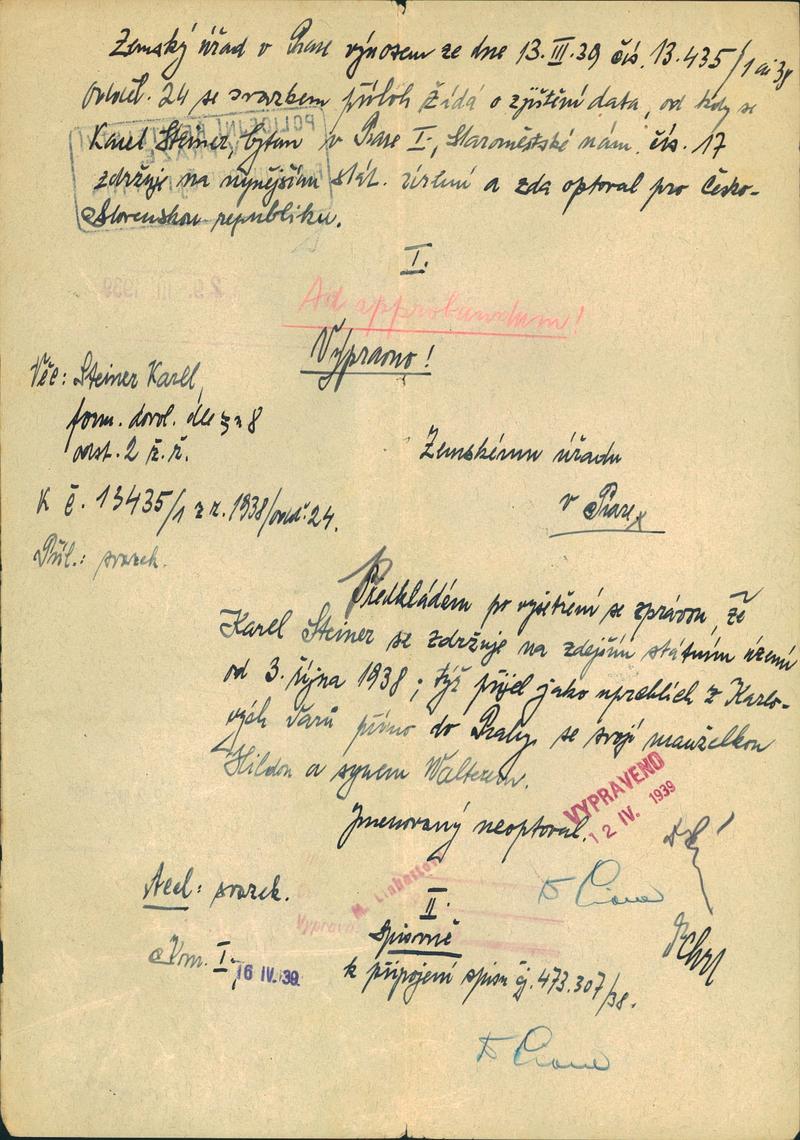 Zemský úřad v Praze výnosem ze dne 13.III.39 čís. 13.435/1 ai 38
odděl. 24 se svazkem příloh žádá o zjištění data, od kdy se
Karel Steiner, bytem v Praze I., Staroměstské nám. čís. 17
zdržuje na nynějším stát. území a zda optoval pro Česko-
Slovenskou republiku.
I.
Ad approbandum!
Výpravno!
Věc: Steiner Karel,
odst. 2 ž. ř.
Zemskému úřadu
v Praze
K č. 13435/1 z r. 1938/odd. 24.
Příl.: svazek.
Předkládám po vyšetření se zprávou, že
Karel Steiner se zdržuje na zdejším státním území
od 3. října 1938; týž přijel jako uprchlík z Karlo-
vých Varů přímo do Prahy se svojí manželkou
Hildou a synem Walterem.
Jmenovaný neoptoval.
VYPRAVENO
12 IV. 1939
Acel: svazek.
II.
Spisovně
Kom. I.
16 IV. 39.
k připojení spisu čj. 473.307/38.